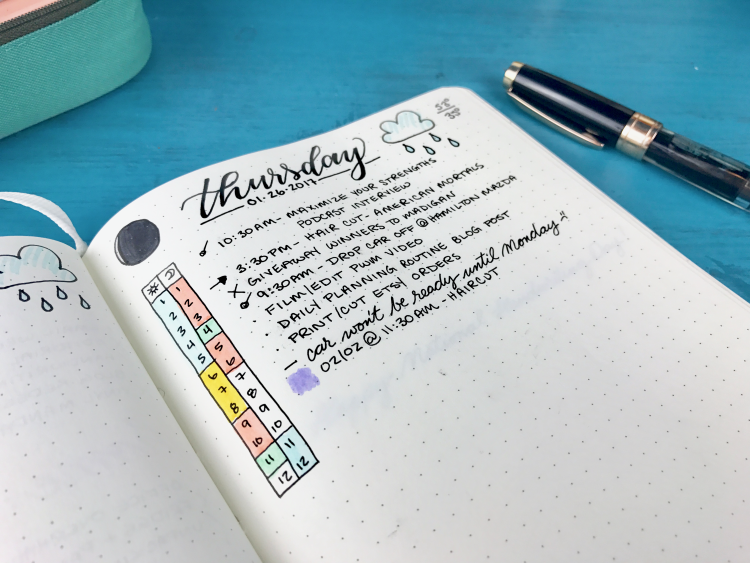 thursday
01.26.2017
52°
38°
10:30AM - MAXIMIZE YOUR STRENGTHS
PODCAST INTERVIEW
3:30PM - HAIR CUT - AMERICAN MORTALS
GIVEAWAY WINNERS TO MADIGAN
9:30AM - DROP CAR OFF @ HAMILTON MAZDA
FILM/EDIT PWM VIDEO
DAILY PLANNING ROUTINE BLOG POST
PRINT/CUT ETSY ORDERS
- car won't be ready until Monday
02/02 @ 11:30AM - HAIRCUT
1 1
2 2
3 3
4 4
5 5
6 6
7 7
8 8
9 9
10 10
11 11
12 12